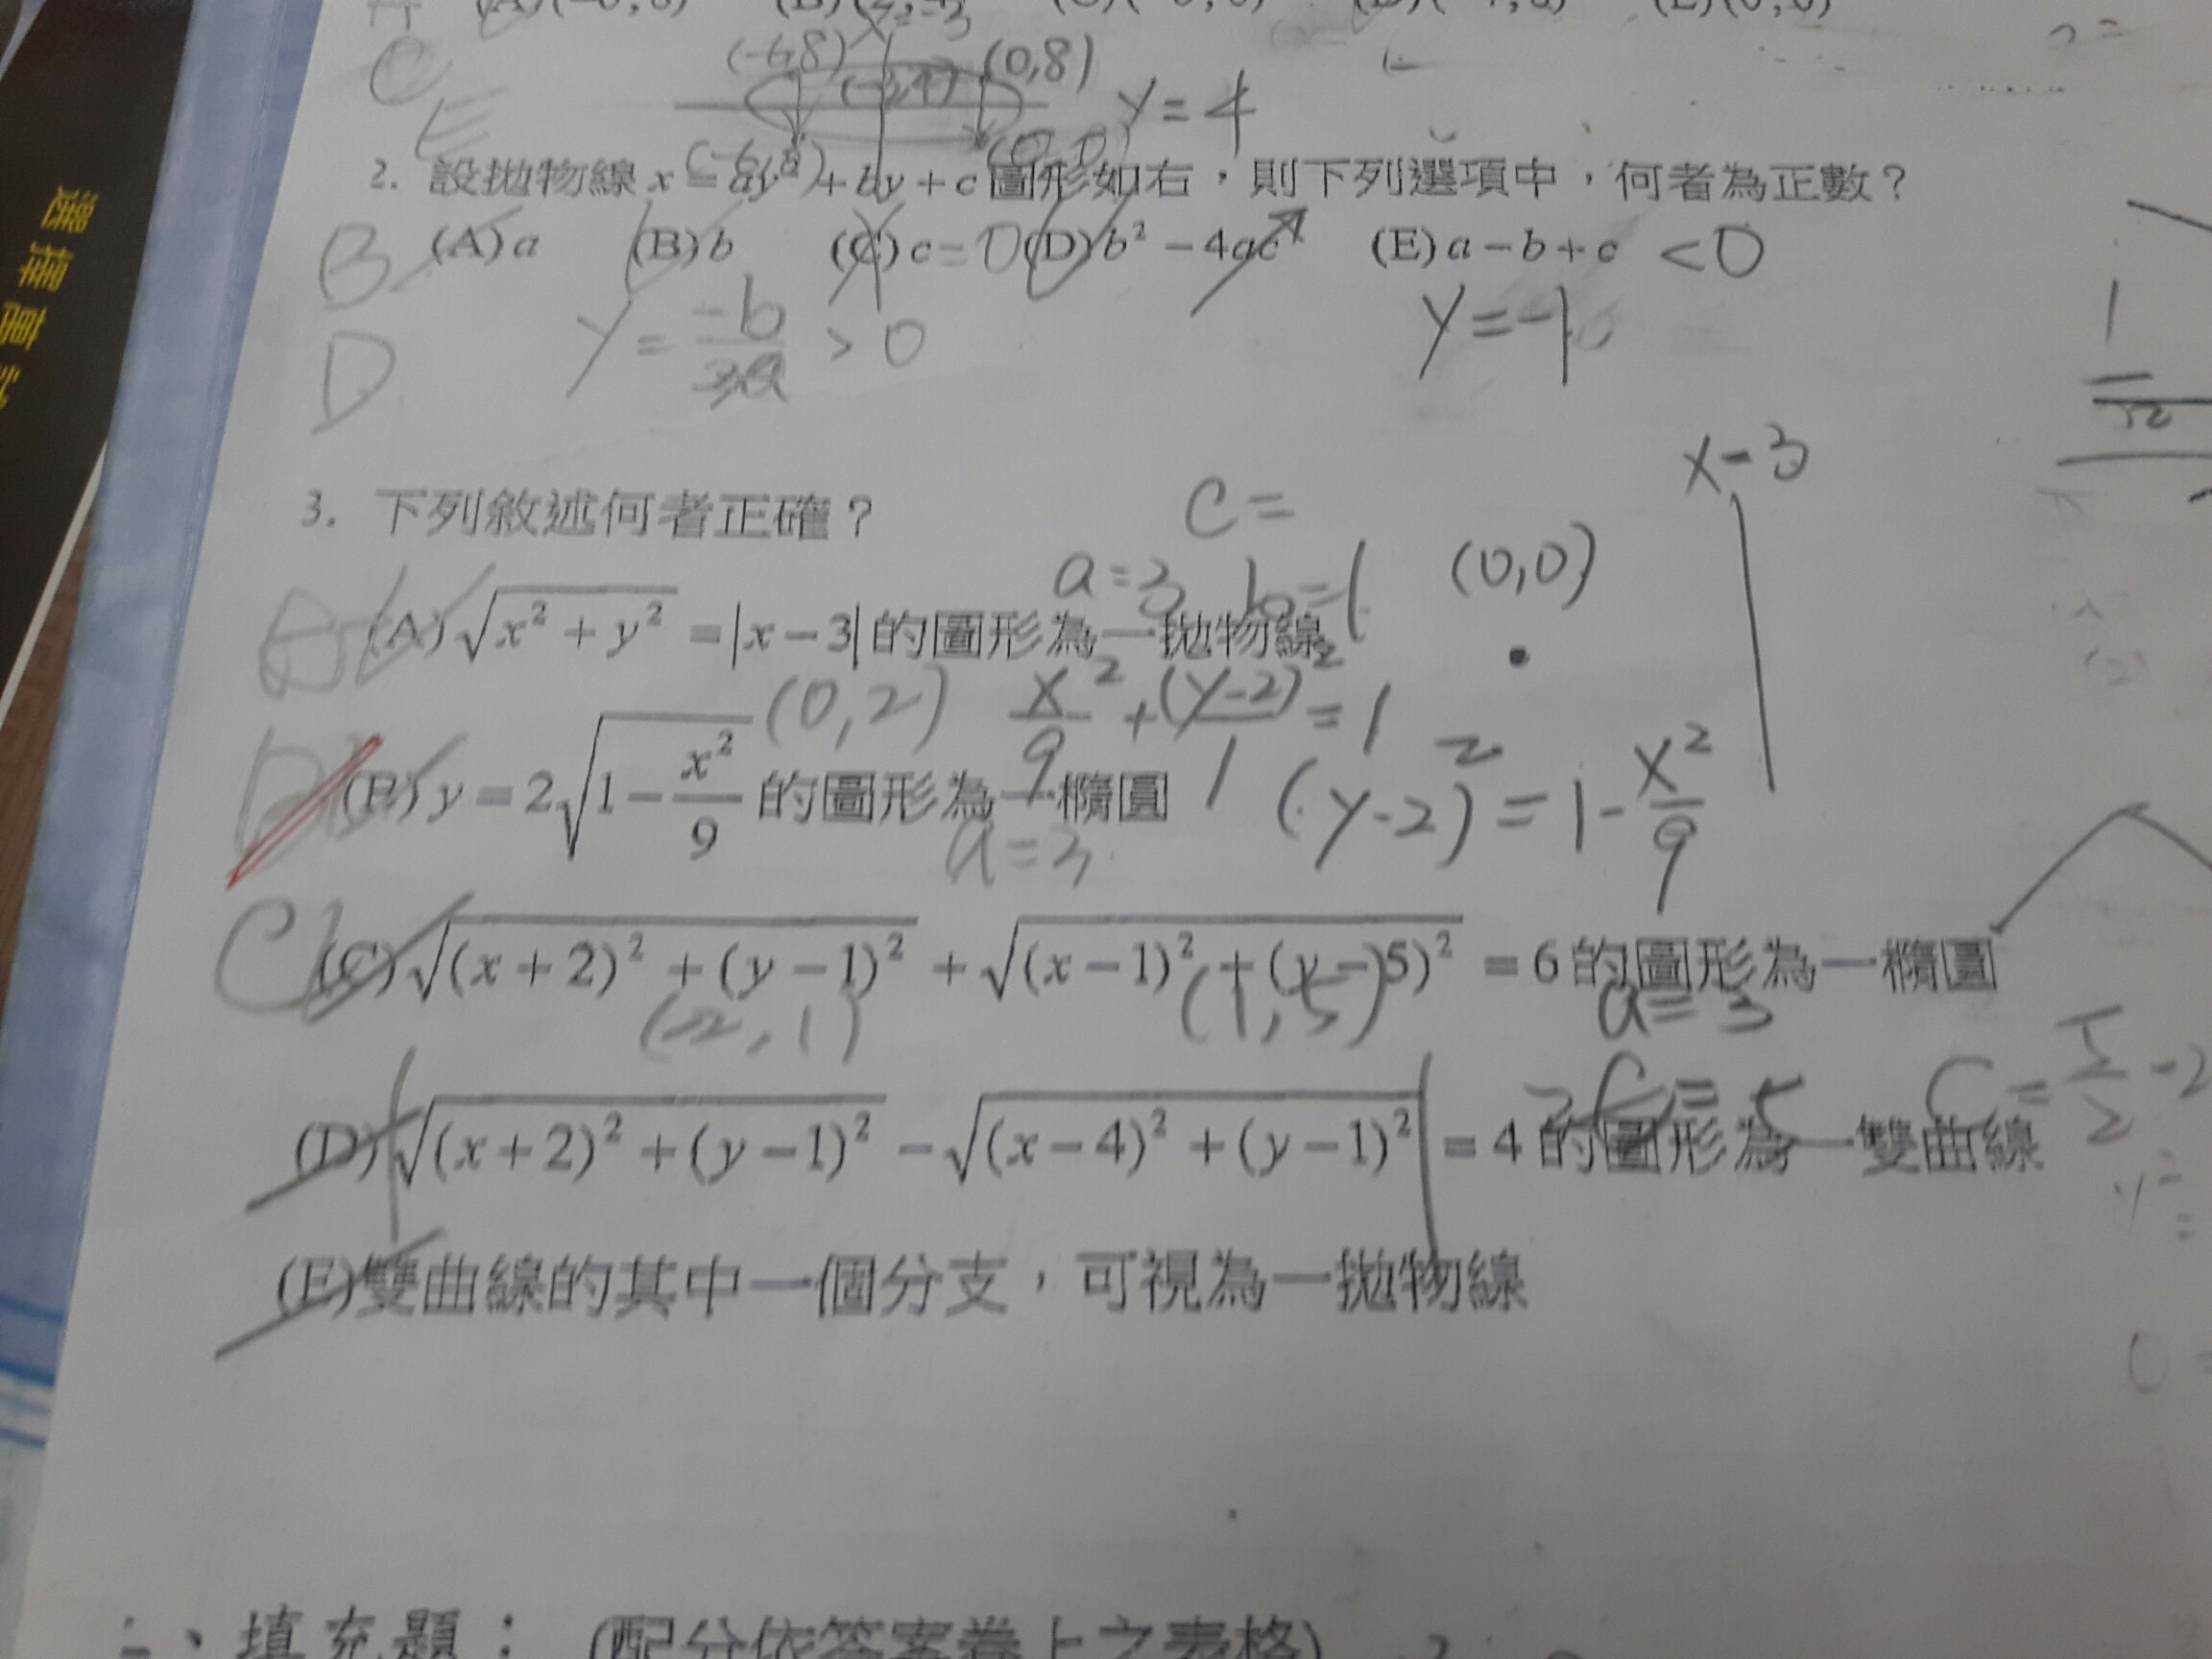 (-6,8) x=-3 (0,8)
(-3,4) y=4
C
E
2. 設拋物線 x=ay²+by+c 圖形如右，則下列選項中，何者為正數？
B (A) a (B) b (C) c =0 (D) b²-4ac (E) a-b+c <0
D y=-b/2a >0 y=-1
x=3
3. 下列敘述何者正確？ c=
a=3 b=1 (0,0)
A (A) √(x²+y²) = |x-3| 的圖形為一拋物線
(0,2) x²/9+(y-2)²/1=1
(B) y=2√(1-x²/9) 的圖形為一橢圓 (y-2)²=1-x²/9
a=3
C (C) √((x+2)²+(y-1)²) + √((x-1)²+(y-5)²) = 6 的圖形為一橢圓
(-2,1) (1,5) a=3
2c=5 c=5/2
(D) √((x+2)²+(y-1)²) - √((x-4)²+(y-1)²) = 4 的圖形為一雙曲線
(E) 雙曲線的其中一個分支，可視為一拋物線
二、填充題：(配分依答案卷上之表格)